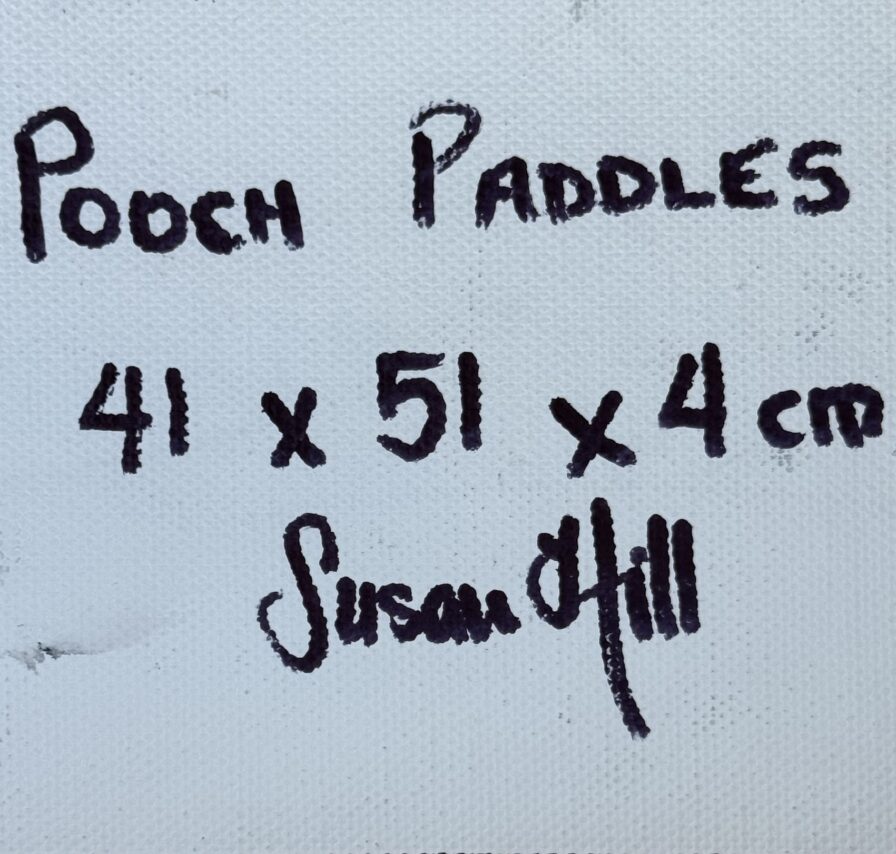 POOCH PADDLES
41 x 51 x 4 cm
Susan Hill